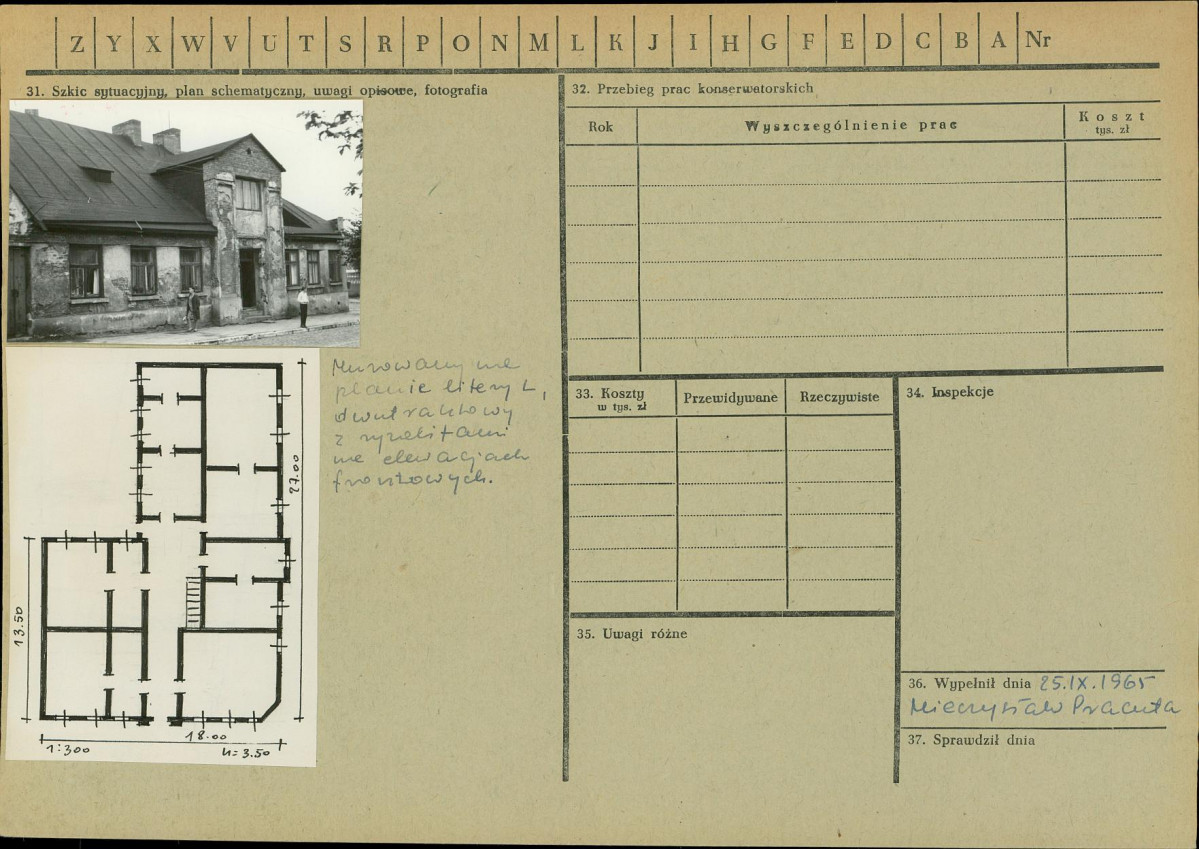 Z Y X W V U T S R P O N M L K J I H G F E D C B A Nr
31. Szkic sytuacyjny, plan schematyczny, uwagi opisowe, fotografia
Murowany na
planie litery L,
dwutraktowy
z ryzalitami
na elewacjach
frontowych.
27.00
13.50
18.00
1:300
h=3.50
32. Przebieg prac konserwatorskich
Rok
Wyszczególnienie prac
Koszt
tys. zł
33. Koszty
w tys. zł
Przewidywane
Rzeczywiste
34. Inspekcje
35. Uwagi różne
36. Wypełnił dnia 25.IX.1965
Mieczysław
37. Sprawdził dnia